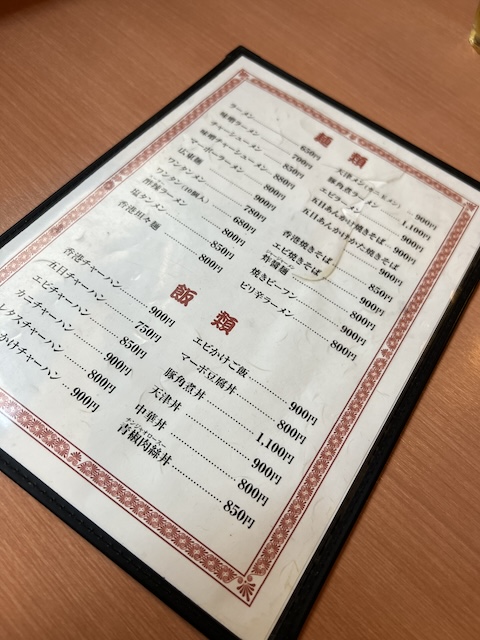 麺類
ラーメン……650円
味噌ラーメン……700円
チャーシューメン……850円
味噌チャーシューメン…880円
マーボーラーメン……800円
広東麺……900円
ワンタンメン……780円
ワンタン(10個入)……680円
塩タンメン……850円
香港担々麺……800円
天津メン
900円
豚角煮ラーメン……1,100円
エビラーメン……900円
五目あんかけ焼きそば…900円
五目あんかけかた焼きそば…900円
香港焼きそば……850円
エビ焼きそば……900円
炸醤麺……800円
焼きビーフン……900円
ピリ辛ラーメン……800円
飯類
香港チャーハン……900円
五目チャーハン……750円
エビチャーハン……850円
カニチャーハン……900円
タスチャーハン……800円
かけチャーハン…900円
エビかけご飯……900円
マーボ豆腐丼……800円
豚角煮丼……1,100円
天津丼……900円
中華丼……800円
チンジャオロースー
青椒肉絲丼……850円